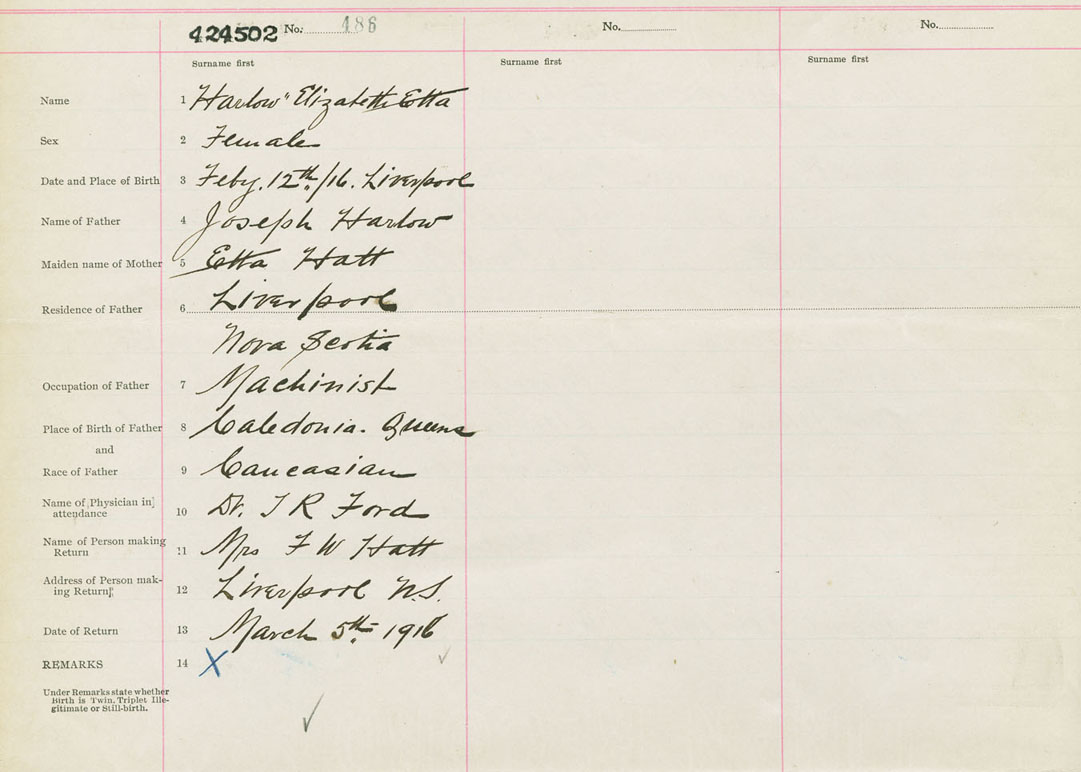 424502 No. 486 No. No.
Surname first Surname first Surname first
Name 1 Harlow" Elizabeth Etta
Sex 2 Female
Date and Place of Birth 3 Feby. 12th/16. Liverpool
Name of Father 4 Joseph Harlow
Maiden name of Mother 5 Etta Hatt
Residence of Father 6 Liverpool
Nova Scotia
Occupation of Father 7 Machinist
Place of Birth of Father 8 Caledonia. Queens
and
Race of Father 9 Caucasian
Name of Physician in
attendance 10 Dr. T R Ford
Name of Person making
Return 11 Mrs F W Hatt
Address of Person mak-
ing Return 12 Liverpool N.S.
Date of Return 13 March 5th 1916
REMARKS 14 X
Under Remarks state whether
Birth is Twin, Triplet Ille-
gitimate or Still-birth.